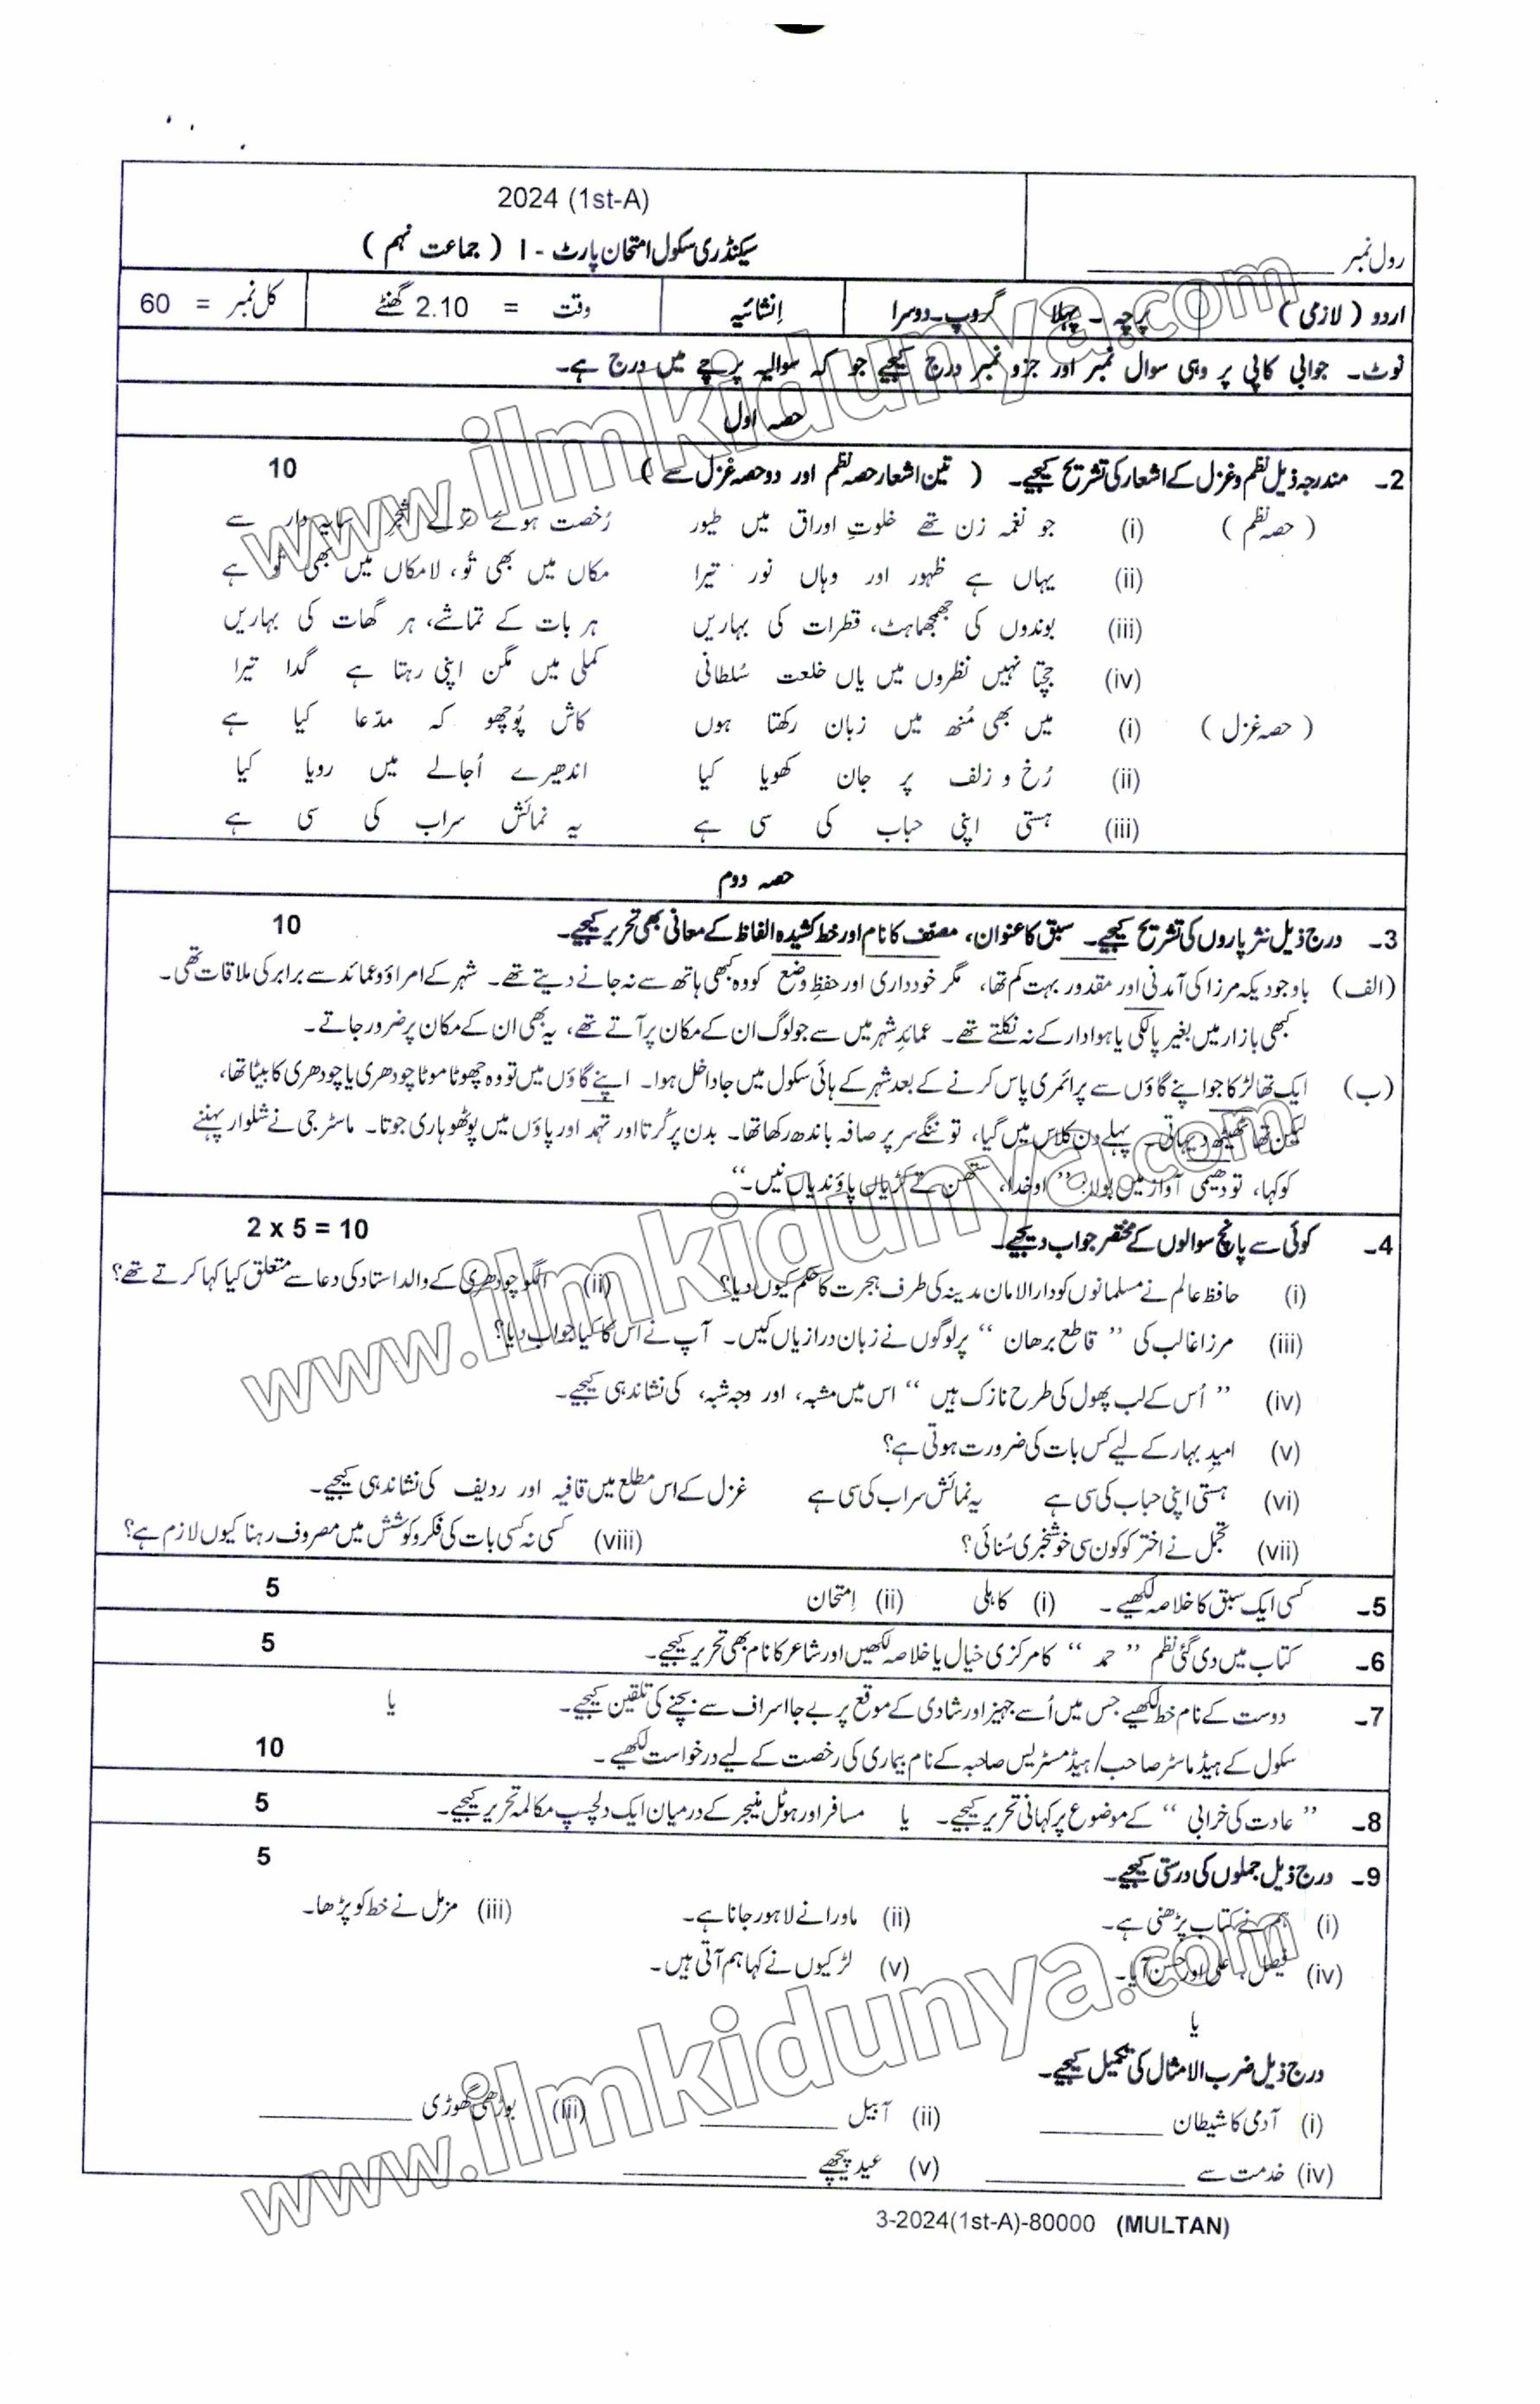 2024 (1st-A)
سیکنڈری سکول امتحان پارٹ - I ( جماعت نہم )
رول نمبر
اردو ( لازمی ) پرچہ ۔ پہلا گروپ۔دوسرا اِنشائیہ وقت = 2.10 گھنٹے کل نمبر = 60
نوٹ۔ جوابی کاپی پر وہی سوال نمبر اور جزو نمبر درج کیجیے جو کہ سوالیہ پرچے میں درج ہے۔
حصہ اول
2۔ مندرجہ ذیل نظم و غزل کے اشعار کی تشریح کیجیے۔ ( تین اشعار حصہ نظم اور دو حصہ غزل سے ) 10
( حصہ نظم ) (i) جو نغمہ زن تھے خلوتِ اوراق میں طیور رُخصت ہوئے ترے شجرِ سایہ دار سے
(ii) یہاں ہے ظہور اور وہاں نور تیرا مکاں میں بھی تُو، لامکاں میں بھی تو ہے
(iii) بوندوں کی جھمجھماہٹ، قطرات کی بہاریں ہر بات کے تماشے، ہر گھات کی بہاریں
(iv) جچتا نہیں نظروں میں یاں خلعت سُلطانی کملی میں مگن اپنی رہتا ہے گدا تیرا
( حصہ غزل ) (i) میں بھی مُنھ میں زبان رکھتا ہوں کاش پُوچھو کہ مدّعا کیا ہے
(ii) رُخ و زلف پر جان کھویا کیا اندھیرے اُجالے میں رویا کیا
(iii) ہستی اپنی حباب کی سی ہے یہ نمائش سراب کی سی ہے
حصہ دوم
3۔ درج ذیل نثر پاروں کی تشریح کیجیے۔ سبق کا عنوان، مصنّف کا نام اور خط کشیدہ الفاظ کے معانی بھی تحریر کیجیے۔ 10
(الف) باوجودیکہ مرزا کی آمدنی اور مقدور بہت کم تھا، مگر خودداری اور حفظِ وضع کو وہ کبھی ہاتھ سے نہ جانے دیتے تھے۔ شہر کے امراؤ و عمائد سے برابر کی ملاقات تھی۔
کبھی بازار میں بغیر پالکی یا ہوادار کے نہ نکلتے تھے۔ عمائدِ شہر میں سے جو لوگ ان کے مکان پر آتے تھے، یہ بھی ان کے مکان پر ضرور جاتے۔
(ب) ایک تھا لڑکا جو اپنے گاؤں سے پرائمری پاس کرنے کے بعد شہر کے ہائی سکول میں جا داخل ہوا۔ اپنے گاؤں میں تو وہ چھوٹا موٹا چودھری یا چودھری کا بیٹا تھا،
لیکن تھا ٹھیٹھ دیہاتی۔ پہلے دن کلاس میں گیا، تو ننگے سر پر صافہ باندھ رکھا تھا۔ بدن پر کُرتا اور تہمد اور پاؤں میں پوٹھوہاری جوتا۔ ماسٹر جی نے شلوار پہننے
کو کہا، تو دھیمی آواز میں بولا: ’’ او خدا، ستھن تے کڑیاں پاؤندیاں نیں۔‘‘
4۔ کوئی سے پانچ سوالوں کے مختصر جواب دیجیے۔ 2 x 5 = 10
(i) حافظ عالم نے مسلمانوں کو دارالامان مدینہ کی طرف ہجرت کا حکم کیوں دیا؟ (ii) الگو چودھری کے والد استاد کی دعا سے متعلق کیا کہا کرتے تھے؟
(iii) مرزا غالب کی ’’ قاطع برھان ‘‘ پر لوگوں نے زبان درازیاں کیں۔ آپ نے اس کا کیا جواب دیا؟
(iv) ’’ اُس کے لب پھول کی طرح نازک ہیں ‘‘ اس میں مشبہ، اور وجہ شبہ، کی نشاندہی کیجیے۔
(v) امیدِ بہار کے لیے کس بات کی ضرورت ہوتی ہے؟
(vi) ہستی اپنی حباب کی سی ہے یہ نمائش سراب کی سی ہے غزل کے اس مطلع میں قافیہ اور ردیف کی نشاندہی کیجیے۔
(vii) تجمل نے اختر کو کون سی خوشخبری سُنائی؟ (viii) کسی نہ کسی بات کی فکر و کوشش میں مصروف رہنا کیوں لازم ہے؟
5۔ کسی ایک سبق کا خلاصہ لکھیے۔ (i) کاہلی (ii) اِمتحان 5
6۔ کتاب میں دی گئی نظم ’’ حمد ‘‘ کا مرکزی خیال یا خلاصہ لکھیں اور شاعر کا نام بھی تحریر کیجیے۔ 5
7۔ دوست کے نام خط لکھیے جس میں اُسے جہیز اور شادی کے موقع پر بے جا اسراف سے بچنے کی تلقین کیجیے۔ یا
سکول کے ہیڈ ماسٹر صاحب/ہیڈ مسٹریس صاحبہ کے نام بیماری کی رخصت کے لیے درخواست لکھیے۔ 10
8۔ ’’ عادت کی خرابی ‘‘ کے موضوع پر کہانی تحریر کیجیے۔ یا مسافر اور ہوٹل منیجر کے درمیان ایک دلچسپ مکالمہ تحریر کیجیے۔ 5
9۔ درج ذیل جملوں کی درستی کیجیے۔ 5
(i) ہم نے کتاب پڑھنی ہے۔ (ii) ماورا نے لاہور جانا ہے۔ (iii) مزمل نے خط کو پڑھا۔
(iv) فیصل، علی اور حسن آیا۔ (v) لڑکیوں نے کہا ہم آتی ہیں۔
یا
درج ذیل ضرب الامثال کی تکمیل کیجیے۔
(i) آدمی کا شیطان (ii) آ بیل (iii) بوڑھی گھوڑی
(iv) خدمت سے (v) عید پیچھے
3-2024(1st-A)-80000 (MULTAN)
www.ilmkidunya.com
www.ilmkidunya.com
www.ilmkidunya.com